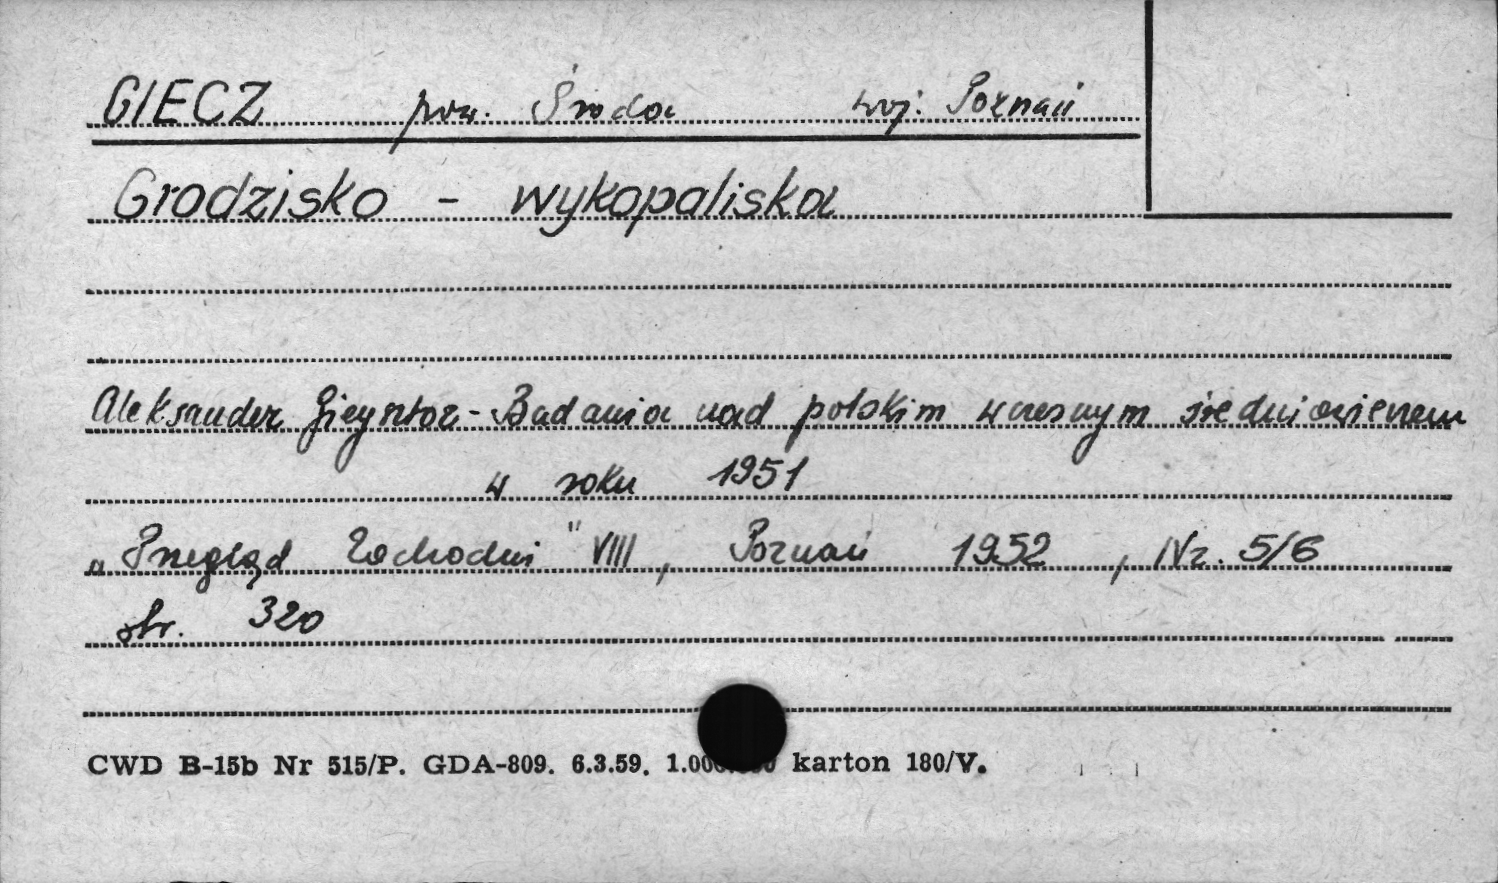 GIECZ pow. Środa woj. Poznań
Grodzisko - wykopaliska
Aleksander Gieysztor - Badania nad polskim wczesnym średniowieczem
w roku 1951
„Przegląd Zachodni" VIII, Poznań 1952, Nr. 5/6
str. 320
CWD B-15b Nr 515/P. GDA-809. 6.3.59. 1.000.000 karton 180/V.